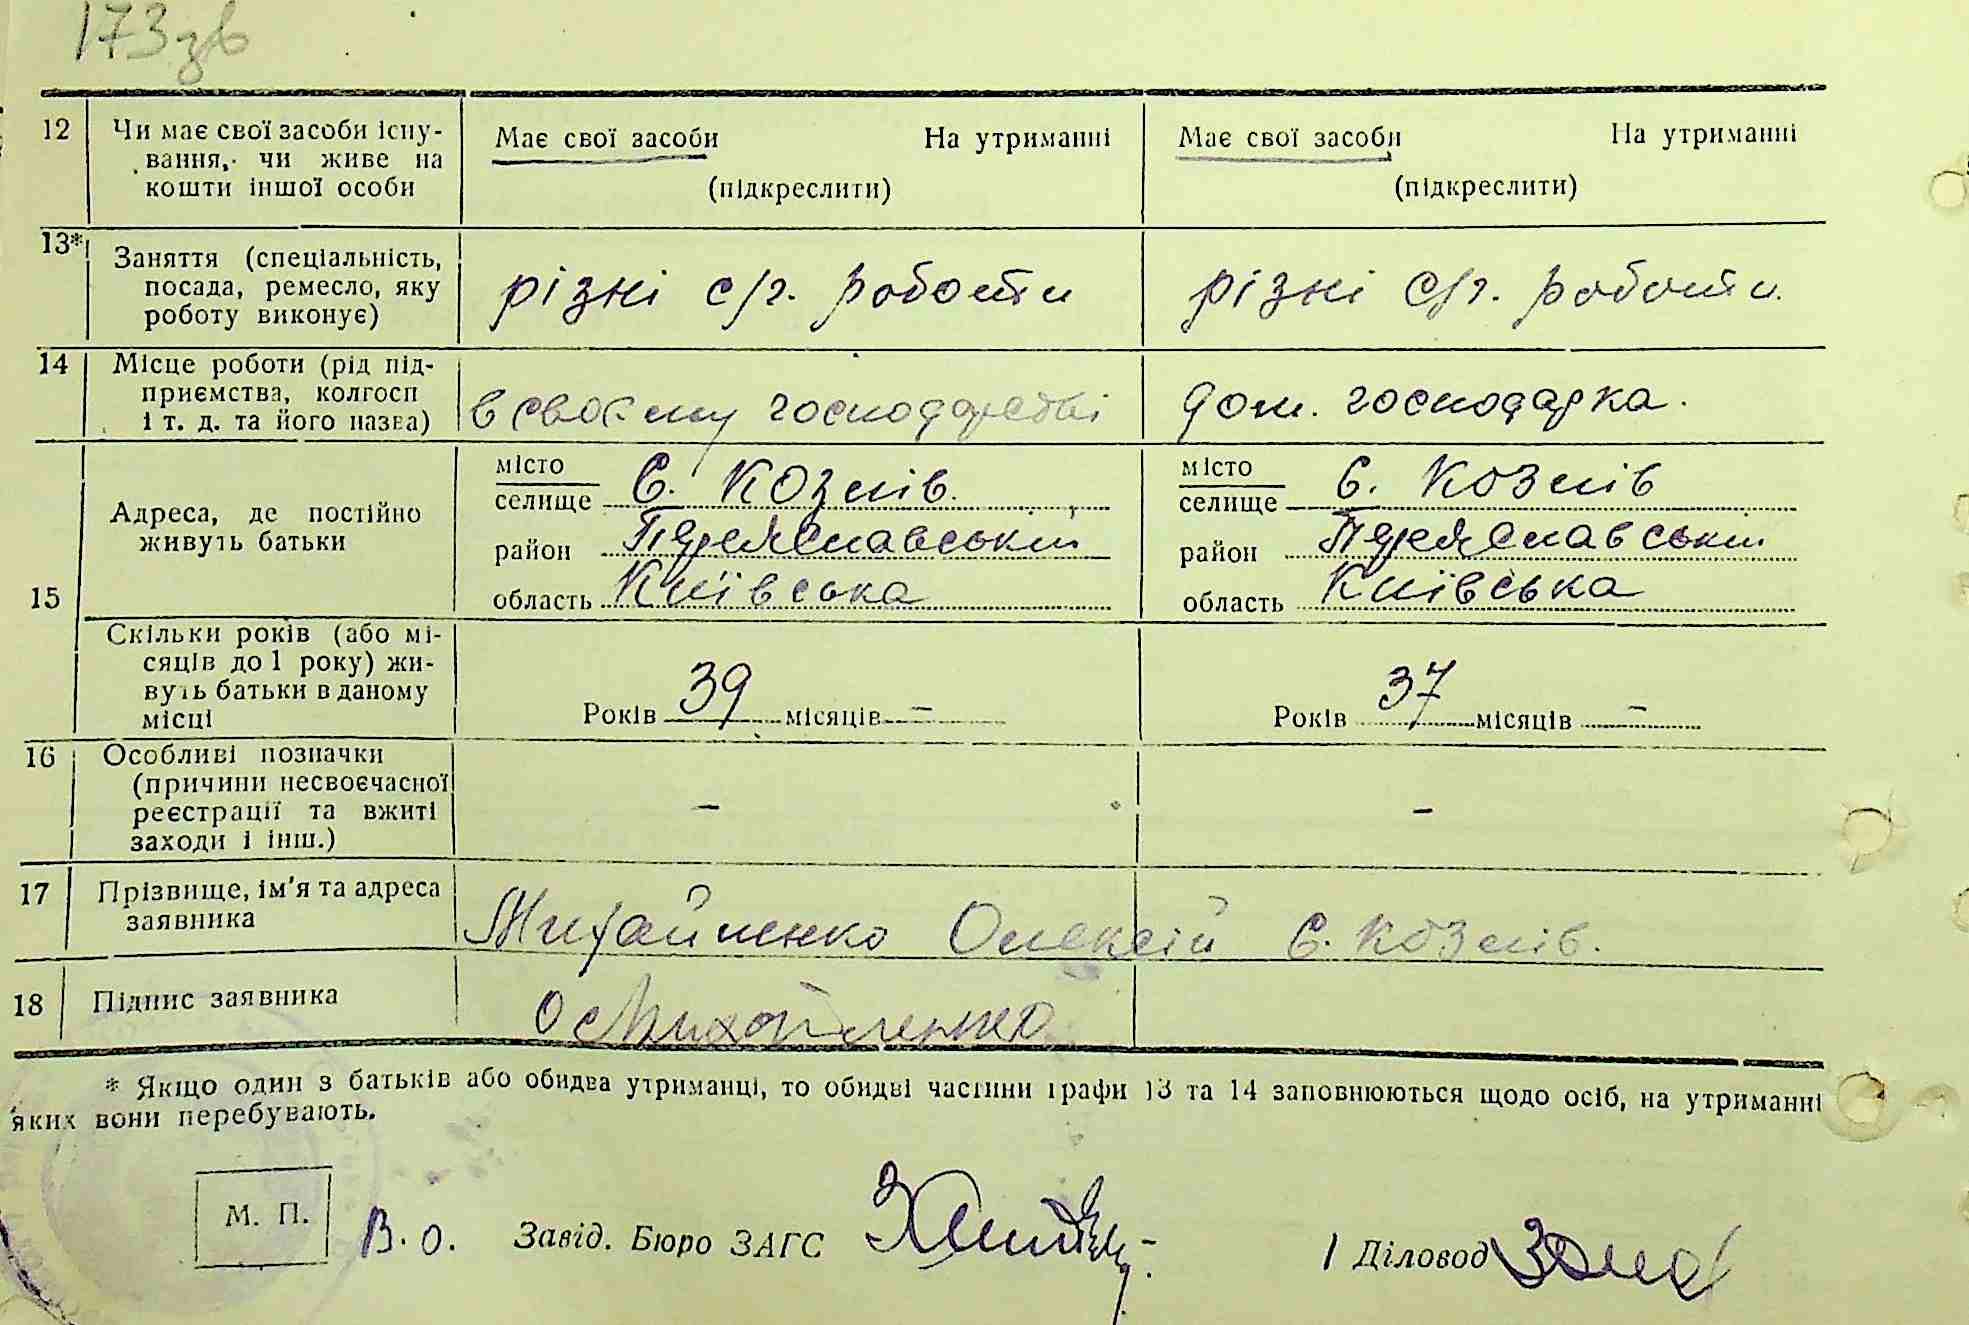 173 зв
12 Чи має свої засоби існу- Має свої засоби На утриманні Має свої засоби На утриманні
вання, чи живе на
кошти іншої особи (підкреслити) (підкреслити)
13* Заняття (спеціальність,
посада, ремесло, яку різні с/г. роботи різні с/г. роботи
роботу виконує)
14 Місце роботи (рід під-
приємства, колгосп в своєму господарстві дом. господарка.
і т. д. та його назва)
15 Адреса, де постійно
живуть батьки
місто місто
селище с. Козлів. селище с. Козлів
район Переяславський район Переяславський
область Київська область Київська
Скільки років (або мі-
сяців до 1 року) жи-
вуть батьки в даному
місці Років 39 місяців - Років 37 місяців -
16 Особливі позначки
(причини несвоєчасної
реєстрації та вжиті - -
заходи і інш.)
17 Прізвище, ім'я та адреса
заявника Михайленко Олексій с. Козлів.
18 Підпис заявника Михайленко
* Якщо один з батьків або обидва утриманці, то обидві частини графи 13 та 14 заповнюються щодо осіб, на утриманні
яких вони перебувають.
М. П. В. о. Завід. Бюро ЗАГС Діловод